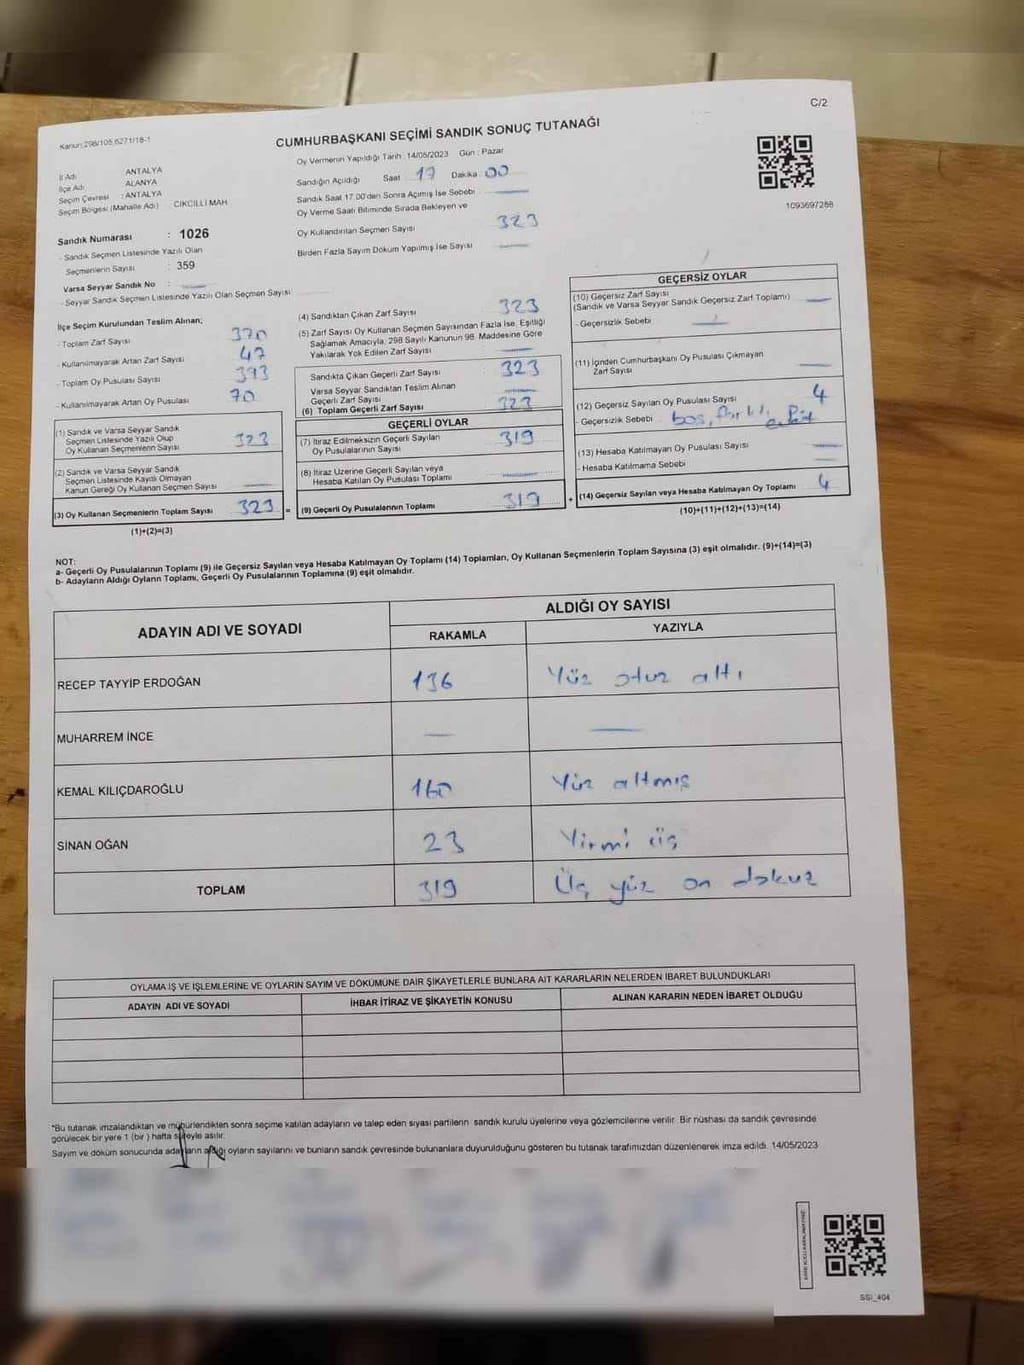 C/2
Kanun:298/105,6271/18-1
CUMHURBAŞKANI SEÇİMİ SANDIK SONUÇ TUTANAĞI
Oy Vermenin Yapıldığı Tarih : 14/05/2023 Gün : Pazar
İl Adı ANTALYA
İlçe Adı ALANYA
Seçim Çevresi : ANTALYA
Seçim Bölgesi (Mahalle Adı) CIKCILLI MAH
Sandığın Açıldığı Saat 17 Dakika 00
Sandık Saat 17.00'den Sonra Açımış İse Sebebi —
Oy Verme Saati Bitiminde Sırada Bekleyen ve
Oy Kullandırılan Seçmen Sayısı 323
Birden Fazla Sayım Döküm Yapılmış İse Sayısı —
1093697288
Sandık Numarası : 1026
- Sandık Seçmen Listesinde Yazılı Olan
Seçmenlerin Sayısı : 359
Varsa Seyyar Sandık No : —
- Seyyar Sandık Seçmen Listesinde Yazılı Olan Seçmen Sayısı:
İlçe Seçim Kurulundan Teslim Alınan;
- Toplam Zarf Sayısı 370
- Kullanılmayarak Artan Zarf Sayısı 47
- Toplam Oy Pusulası Sayısı 393
- Kullanılmayarak Artan Oy Pusulası 70
(1) Sandık ve Varsa Seyyar Sandık
Seçmen Listesinde Yazılı Olup
Oy Kullanan Seçmenlerin Sayısı 323
(2) Sandık ve Varsa Seyyar Sandık
Seçmen Listesinde Kayıtlı Olmayan
Kanun Gereği Oy Kullanan Seçmen Sayısı —
(3) Oy Kullanan Seçmenlerin Toplam Sayısı 323 =
(1)+(2)=(3)
(4) Sandıktan Çıkan Zarf Sayısı 323
(5) Zarf Sayısı Oy Kullanan Seçmen Sayısından Fazla İse, Eşitliği
Sağlamak Amacıyla, 298 Sayılı Kanunun 98. Maddesine Göre
Yakılarak Yok Edilen Zarf Sayısı —
Sandıkta Çıkan Geçerli Zarf Sayısı 323
Varsa Seyyar Sandıktan Teslim Alınan
Geçerli Zarf Sayısı —
(6) Toplam Geçerli Zarf Sayısı 323
GEÇERLİ OYLAR
(7) İtiraz Edilmeksizin Geçerli Sayılan
Oy Pusulalarının Sayısı 319
(8) İtiraz Üzerine Geçerli Sayılan veya
Hesaba Katılan Oy Pusulası Toplamı —
(9) Geçerli Oy Pusulalarının Toplamı 319 +
GEÇERSİZ OYLAR
(10) Geçersiz Zarf Sayısı
(Sandık ve Varsa Seyyar Sandık Geçersiz Zarf Toplamı) —
- Geçersizlik Sebebi —
(11) İçinden Cumhurbaşkanı Oy Pusulası Çıkmayan
Zarf Sayısı —
(12) Geçersiz Sayılan Oy Pusulası Sayısı 4
- Geçersizlik Sebebi boş, farklı,
(13) Hesaba Katılmayan Oy Pusulası Sayısı —
- Hesaba Katılmama Sebebi —
(14) Geçersiz Sayılan veya Hesaba Katılmayan Oy Toplamı 4
(10)+(11)+(12)+(13)=(14)
NOT:
a- Geçerli Oy Pusulalarının Toplamı (9) ile Geçersiz Sayılan veya Hesaba Katılmayan Oy Toplamı (14) Toplamları, Oy Kullanan Seçmenlerin Toplam Sayısına (3) eşit olmalıdır. (9)+(14)=(3)
b- Adayların Aldığı Oyların Toplamı, Geçerli Oy Pusulalarının Toplamına (9) eşit olmalıdır.
ADAYIN ADI VE SOYADI
ALDIĞI OY SAYISI
RAKAMLA YAZIYLA
RECEP TAYYİP ERDOĞAN 136 Yüz otuz altı
MUHARREM İNCE — —
KEMAL KILIÇDAROĞLU 160 Yüz altmış
SİNAN OĞAN 23 Yirmi üç
TOPLAM 319 Üç yüz on dokuz
OYLAMA İŞ VE İŞLEMLERİNE VE OYLARIN SAYIM VE DÖKÜMÜNE DAİR ŞİKAYETLERLE BUNLARA AİT KARARLARIN NELERDEN İBARET BULUNDUKLARI
ADAYIN ADI VE SOYADI İHBAR İTİRAZ VE ŞİKAYETİN KONUSU ALINAN KARARIN NEDEN İBARET OLDUĞU
*Bu tutanak imzalandıktan ve mühürlendikten sonra seçime katılan adayların ve talep eden siyasi partilerin sandık kurulu üyelerine veya gözlemcilerine verilir. Bir nüshası da sandık çevresinde
görülecek bir yere 1 (bir ) hafta süreyle asılır.
Sayım ve döküm sonucunda adayların aldığı oyların sayılarını ve bunların sandık çevresinde bulunanlara duyurulduğunu gösteren bu tutanak tarafımızdan düzenlenerek imza edildi. 14/05/2023
SSI_404